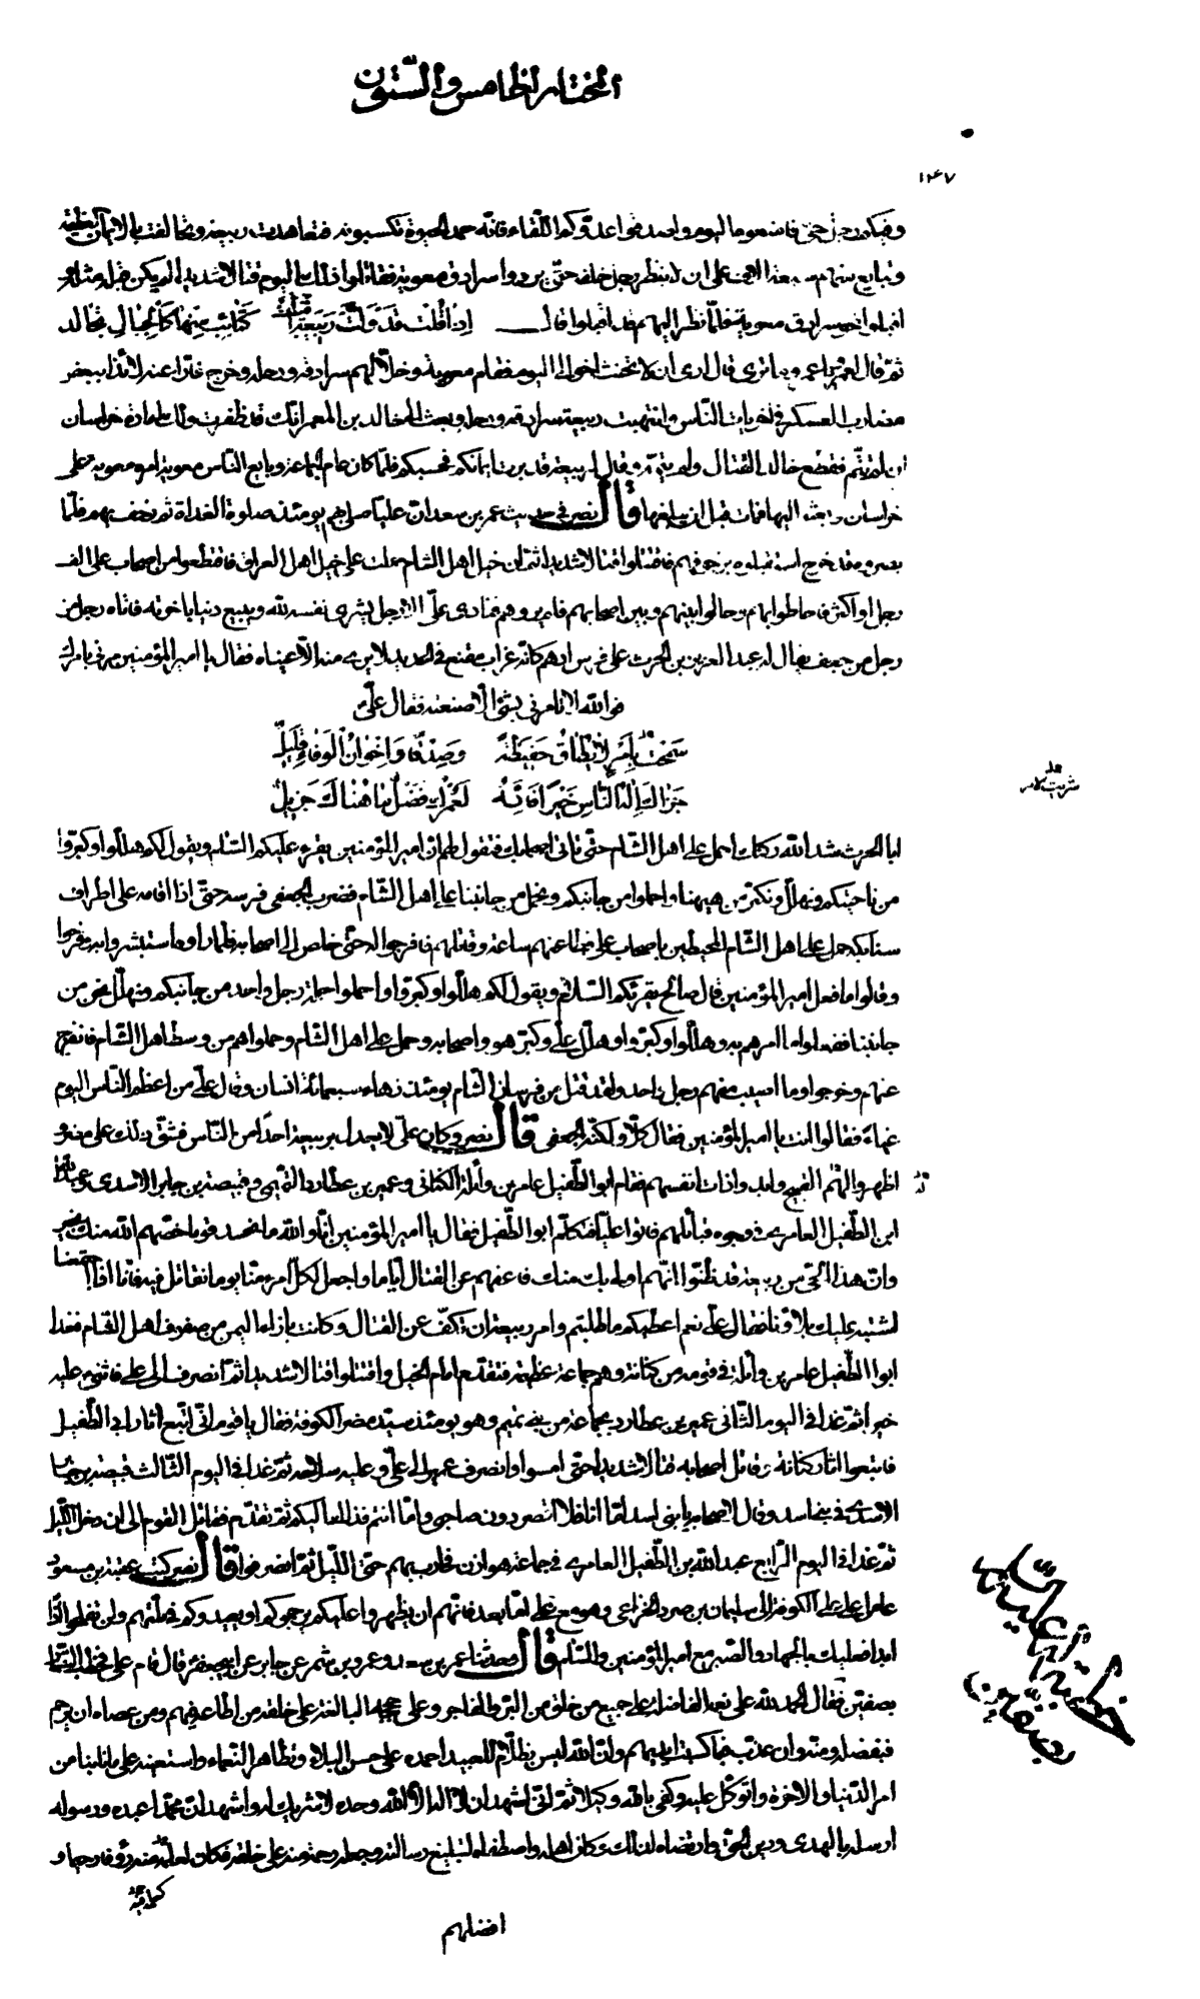 المختار الخامس والستون
١٤٧
اقبلوا الى سرادق معوية فلما نظر اليهم قد اقبلوا قال اذا قلت قد ولت ربيعة اقبلت كتائب منهم كالجبال تجالد
ثم قال لعمرو يا عمرو ما ترى قال ارى ان لا تحنث اخوالى اليوم فقام معوية وخلا لهم سرادقه ورحله وخرج فارا عنه لائذا ببعض
مضارب العسكر فى اخريات الناس وانتهبت ربيعة سرادقه ورحله وبعث الى خالد بن المعمر انك قد ظفرت ولك امارة خراسان
ان لم تتم فقطع خالد القتال ولم يتمه وقال لربيعة قد برت ايمانكم فحسبكم فلما كان عام الجماعة وبايع الناس معوية امره معوية على
خراسان وبعثه اليها فمات قبل ان يبلغها قال نصر فى حديث عمر بن سعد ان عليا صلى بهم يومئذ صلوة الغداة ثم زحف بهم فلما
بصروه قد خرج استقبلوه بزحوفهم فاقتتلوا قتالا شديدا ثم ان خيل اهل الشام حملت على خيل اهل العراق فاقتطعوا من اصحاب على الف
رجل او اكثر فاحاطوا بهم وحالوا بينهم وبين اصحابهم فلم يروهم فنادى على الا رجل يشرى نفسه لله ويبيع دنياه باخرته فاتاه رجل من
رجل من جعف يقال له عبد العزيز بن الحرث على فرس ادهم كانه غراب مقنع فى الحديد لا يرى منه الا عيناه فقال يا امير المؤمنين مرنى بامرك
فوالله لا تامرنى بشئ الا صنعته فقال على
سمحت بامر لا يطاق حفيظة وصدقا واخوان الوفاء قليل
جزاك اله الناس خيرا فانه لعمرك فضل ما هناك جزيل
ابا الحرث شد الله ركنك احمل على اهل الشام حتى تاتى اصحابك فتقول لهم ان امير المؤمنين يقرء عليكم السلام ويقول لكم هللوا وكبروا
من ناحيتكم ونهلل ونكبر من هيهنا واحملوا من جانبكم ونحمل من جانبنا على اهل الشام فضرب الجعفى فرسه حتى اذا اقامه على اطراف
سنابكه حمل على اهل الشام المحيطين باصحاب على فطاعنهم ساعة وقاتلهم فافرجوا له حتى خلص الى اصحابه فلما راوه استبشروا به وفرحوا
وقالوا ما فعل امير المؤمنين قال صالح يقرئكم السلام ويقول لكم هللوا وكبروا واحملوا حملة رجل واحد من جانبكم ونهلل نحن من
جانبنا ففعلوا ما امرهم به وهللوا وكبروا وهلل على وكبر هو واصحابه وحمل على اهل الشام وحملوا هم من وسط اهل الشام فانفرج
عنهم وخرجوا وما اصيب منهم رجل واحد ولقد قتل من فرسان الشام يومئذ زهاء سبعمائة انسان وقال على من اعظم الناس اليوم
غناء فقالوا انت يا امير المؤمنين فقال كلا ولكنه الجعفى قال نصر وكان على لا يعدل بربيعة احدا من الناس فشق ذلك على مضر و
اظهروا لهم القبيح وابدوا ذات انفسهم فقام ابو الطفيل عامر بن واثلة الكنانى وعمير بن عطارد التميمى وقبيصة بن جابر الاسدى وعبد الله
ابن الطفيل العامرى فى وجوه قبائلهم فاتوا عليا فتكلم ابو الطفيل فقال يا امير المؤمنين انا والله ما نحسد قوما خصهم الله منك بخير
وان هذا الحى من ربيعة قد ظنوا انهم اولى بك منا فاعفهم عن القتال اياما واجعل لكل امرء منا يوما نقاتل فيه فانا اذا اجتمعنا
اشتبه عليك بلاؤنا فقال على نعم اعطيكم ما طلبتم وامر ربيعة ان تكف عن القتال وكانت بازاء اليمن من صفوف اهل الشام فغدا
ابو الطفيل عامر بن واثلة فى قومه من كنانة وهم جماعة عظيمة فتقدم امام الخيل واقتتلوا قتالا شديدا ثم انصرف الى على فاثنى عليه
خيرا ثم غدا فى اليوم الثانى عمير بن عطارد بجماعة من بنى تميم وهو يومئذ سيد مضر الكوفة فقال يا قوم انى اتبع اثار ابى الطفيل
فاتبعوا اثار كنانة وقاتل اصحابه قتالا شديدا حتى امسوا وانصرف عمير الى على وعليه سلاحه ثم غدا فى اليوم الثالث قبيصة بن جابر
الاسدى فى بنى اسد وقال لاصحابه يا بنى اسد اما انا فلا اقصر دون صاحبى واما انتم فذاك اليكم ثم تقدم فقاتل القوم الى ان دخل الليل
ثم غدا فى اليوم الرابع عبد الله بن الطفيل العامرى فى جماعة هوازن فحاربهم حتى الليل ثم انصرفوا قال نصر كتب عقبة بن مسعود
عامل على على الكوفة الى سليمان بن صرد الخزاعى وهو مع على اما بعد فانهم ان يظهروا عليكم يرجموكم او يعيدوكم فى ملتهم ولن تفلحوا اذا
ابدا فعليك بالجهاد والصبر مع امير المؤمنين والسلام قال وحدثنا عمر بن سعد وعمرو بن شمر عن جابر عن ابى جعفر قال قام على فخطب الناس
بصفين فقال الحمد لله على نعمه الفاضلة على جميع من خلق من البر والفاجر وعلى حججه البالغة على خلقه من اطاعه فيهم ومن عصاه ان يرحم
فبفضله ومنه وان عذب فبما كسبت ايديهم وان الله ليس بظلام للعبيد احمده على حسن البلاء وتظاهر النعماء واستعينه على ما نابنا من
امر الدنيا والاخرة واتوكل عليه وكفى بالله وكيلا ثم انى اشهد ان لا اله الا الله وحده لا شريك له واشهد ان محمدا عبده ورسوله
ارسله بالهدى ودين الحق وارتضاه لذلك وكان اهله واصطفاه لتبليغ رسالته وجعله رحمة منه على خلقه فكان لعلمه فيه رؤفا رحيما و
افضلهم
خطبة امير المؤمنين عليه السلام بصفين